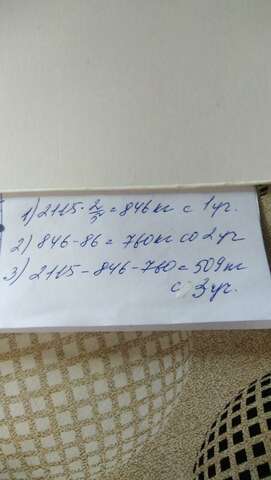 1) 2115 · 2/5 = 846 кг с 1 уч.
2) 846 - 86 = 760 кг со 2 уч
3) 2115 - 846 - 760 = 509 кг
с 3 уч.